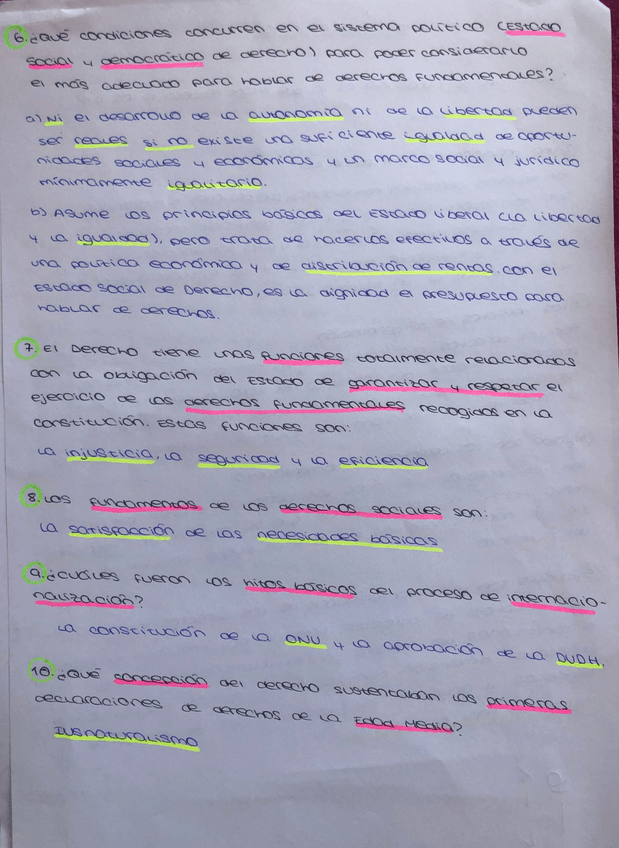 6. ¿Qué condiciones concurren en el sistema político (Estado
social y democrático de derecho) para poder considerarlo
el más adecuado para hablar de derechos fundamentales?
a) Ni el desarrollo de la autonomía ni de la libertad pueden
ser reales si no existe una suficiente igualdad de oportu-
nidades sociales y económicas y un marco social y jurídico
mínimamente igualitario.
b) Asume los principios básicos del Estado liberal (la libertad
y la igualdad), pero trata de hacerlos efectivos a través de
una política económica y de distribución de rentas. con el
Estado social de Derecho, es la dignidad el presupuesto para
hablar de derechos.
7. El Derecho tiene unas funciones totalmente relacionadas
con la obligación del Estado de garantizar y respetar el
ejercicio de los derechos fundamentales recogidos en la
constitución. Estas funciones son:
La injusticia, la seguridad y la eficiencia
8. Los fundamentos de los derechos sociales son:
La satisfacción de las necesidades básicas
9. ¿Cuáles fueron los hitos básicos del proceso de internacio-
nalización?
La constitución de la ONU y la aprobación de la DUDH.
10. ¿Qué concepción del derecho sustentaban las primeras
declaraciones de derechos de la Edad Media?
Iusnaturalismo